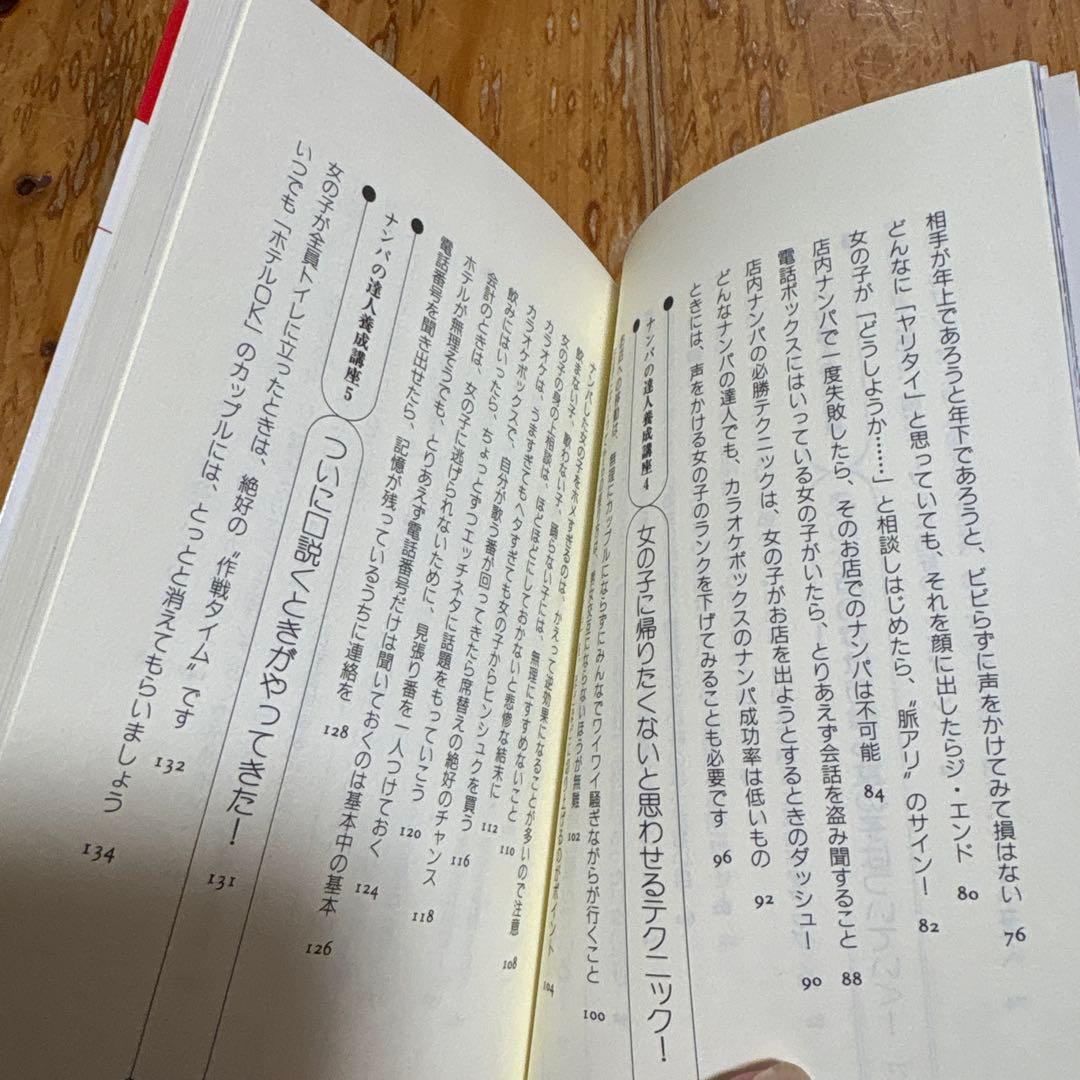 相手が年上であろうと年下であろうと、ビビらずに声をかけてみて損はない 76
どんなに「ヤリタイ」と思っていても、それを顔に出したらジ・エンド 80
女の子が「どうしようか……」と相談しはじめたら、〝脈アリ〟のサイン！ 82
店内ナンパで一度失敗したら、そのお店でのナンパは不可能 84
電話ボックスにはいっている女の子がいたら、とりあえず会話を盗み聞すること 88
店内ナンパの必勝テクニックは、女の子がお店を出ようとするときのダッシュ！ 90
どんなナンパの達人でも、カラオケボックスのナンパ成功率は低いもの 92
ときには、声をかける女の子のランクを下げてみることも必要です 96
ナンパの達人養成講座4
女の子に帰りたくないと思わせるテクニック！
への移動は、無理にカップルにならずにみんなでワイワイ騒ぎながらが行くこと 100
男女交互にならないほうが無難 102
のがポイント 104
ナンパした女の子をホメすぎるのは、かえって逆効果になることが多いので注意 108
飲まない子、歌わない子、踊らない子には、無理にすすめないこと 110
女の子の身の上相談は、ほどほどにしておかないと悲惨な結末に 112
カラオケは、うますぎてもヘタすぎても女の子からヒンシュクを買う 116
カラオケボックスで、自分が歌う番が回ってきたら席替えの絶好のチャンス 118
飲みにはいったら、ちょっとずつエッチネタに話題をもっていこう 120
会計のときは、女の子に逃げられないために、見張り番を一人つけておく 124
ホテルが無理そうでも、とりあえず電話番号だけは聞いておくのは基本中の基本 126
電話番号を聞き出せたら、記憶が残っているうちに連絡を 128
ナンパの達人養成講座5
ついに口説くときがやってきた！ 131
女の子が全員トイレに立ったときは、絶好の〝作戦タイム〟です 132
いつでも「ホテルOK」のカップルには、とっとと消えてもらいましょう 134